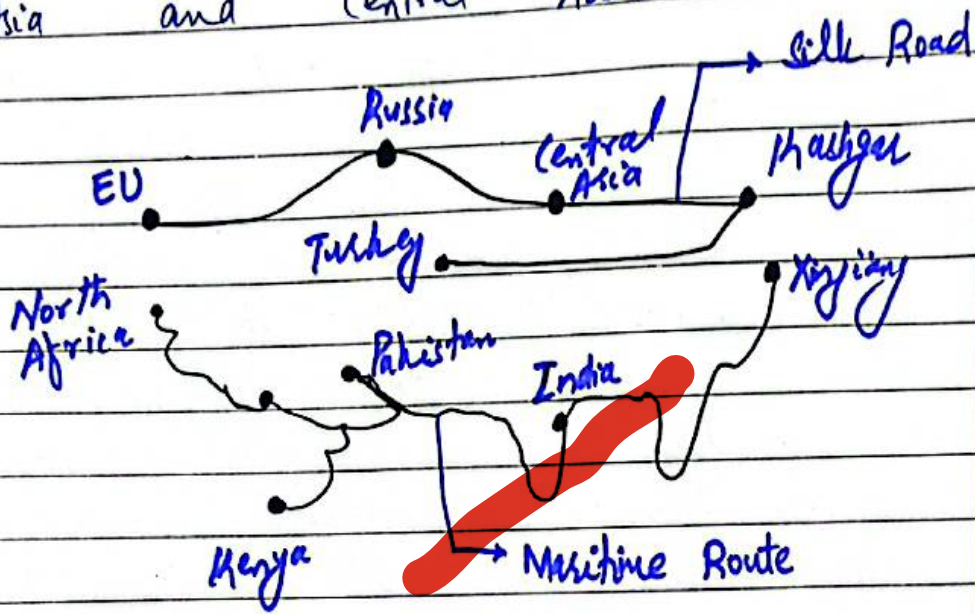 and Central
Silk Road
Russia
Central
Asia
Kashgar
EU
Turkey
Xinjiang
North
Africa
Pakistan
India
Kenya
Maritime Route